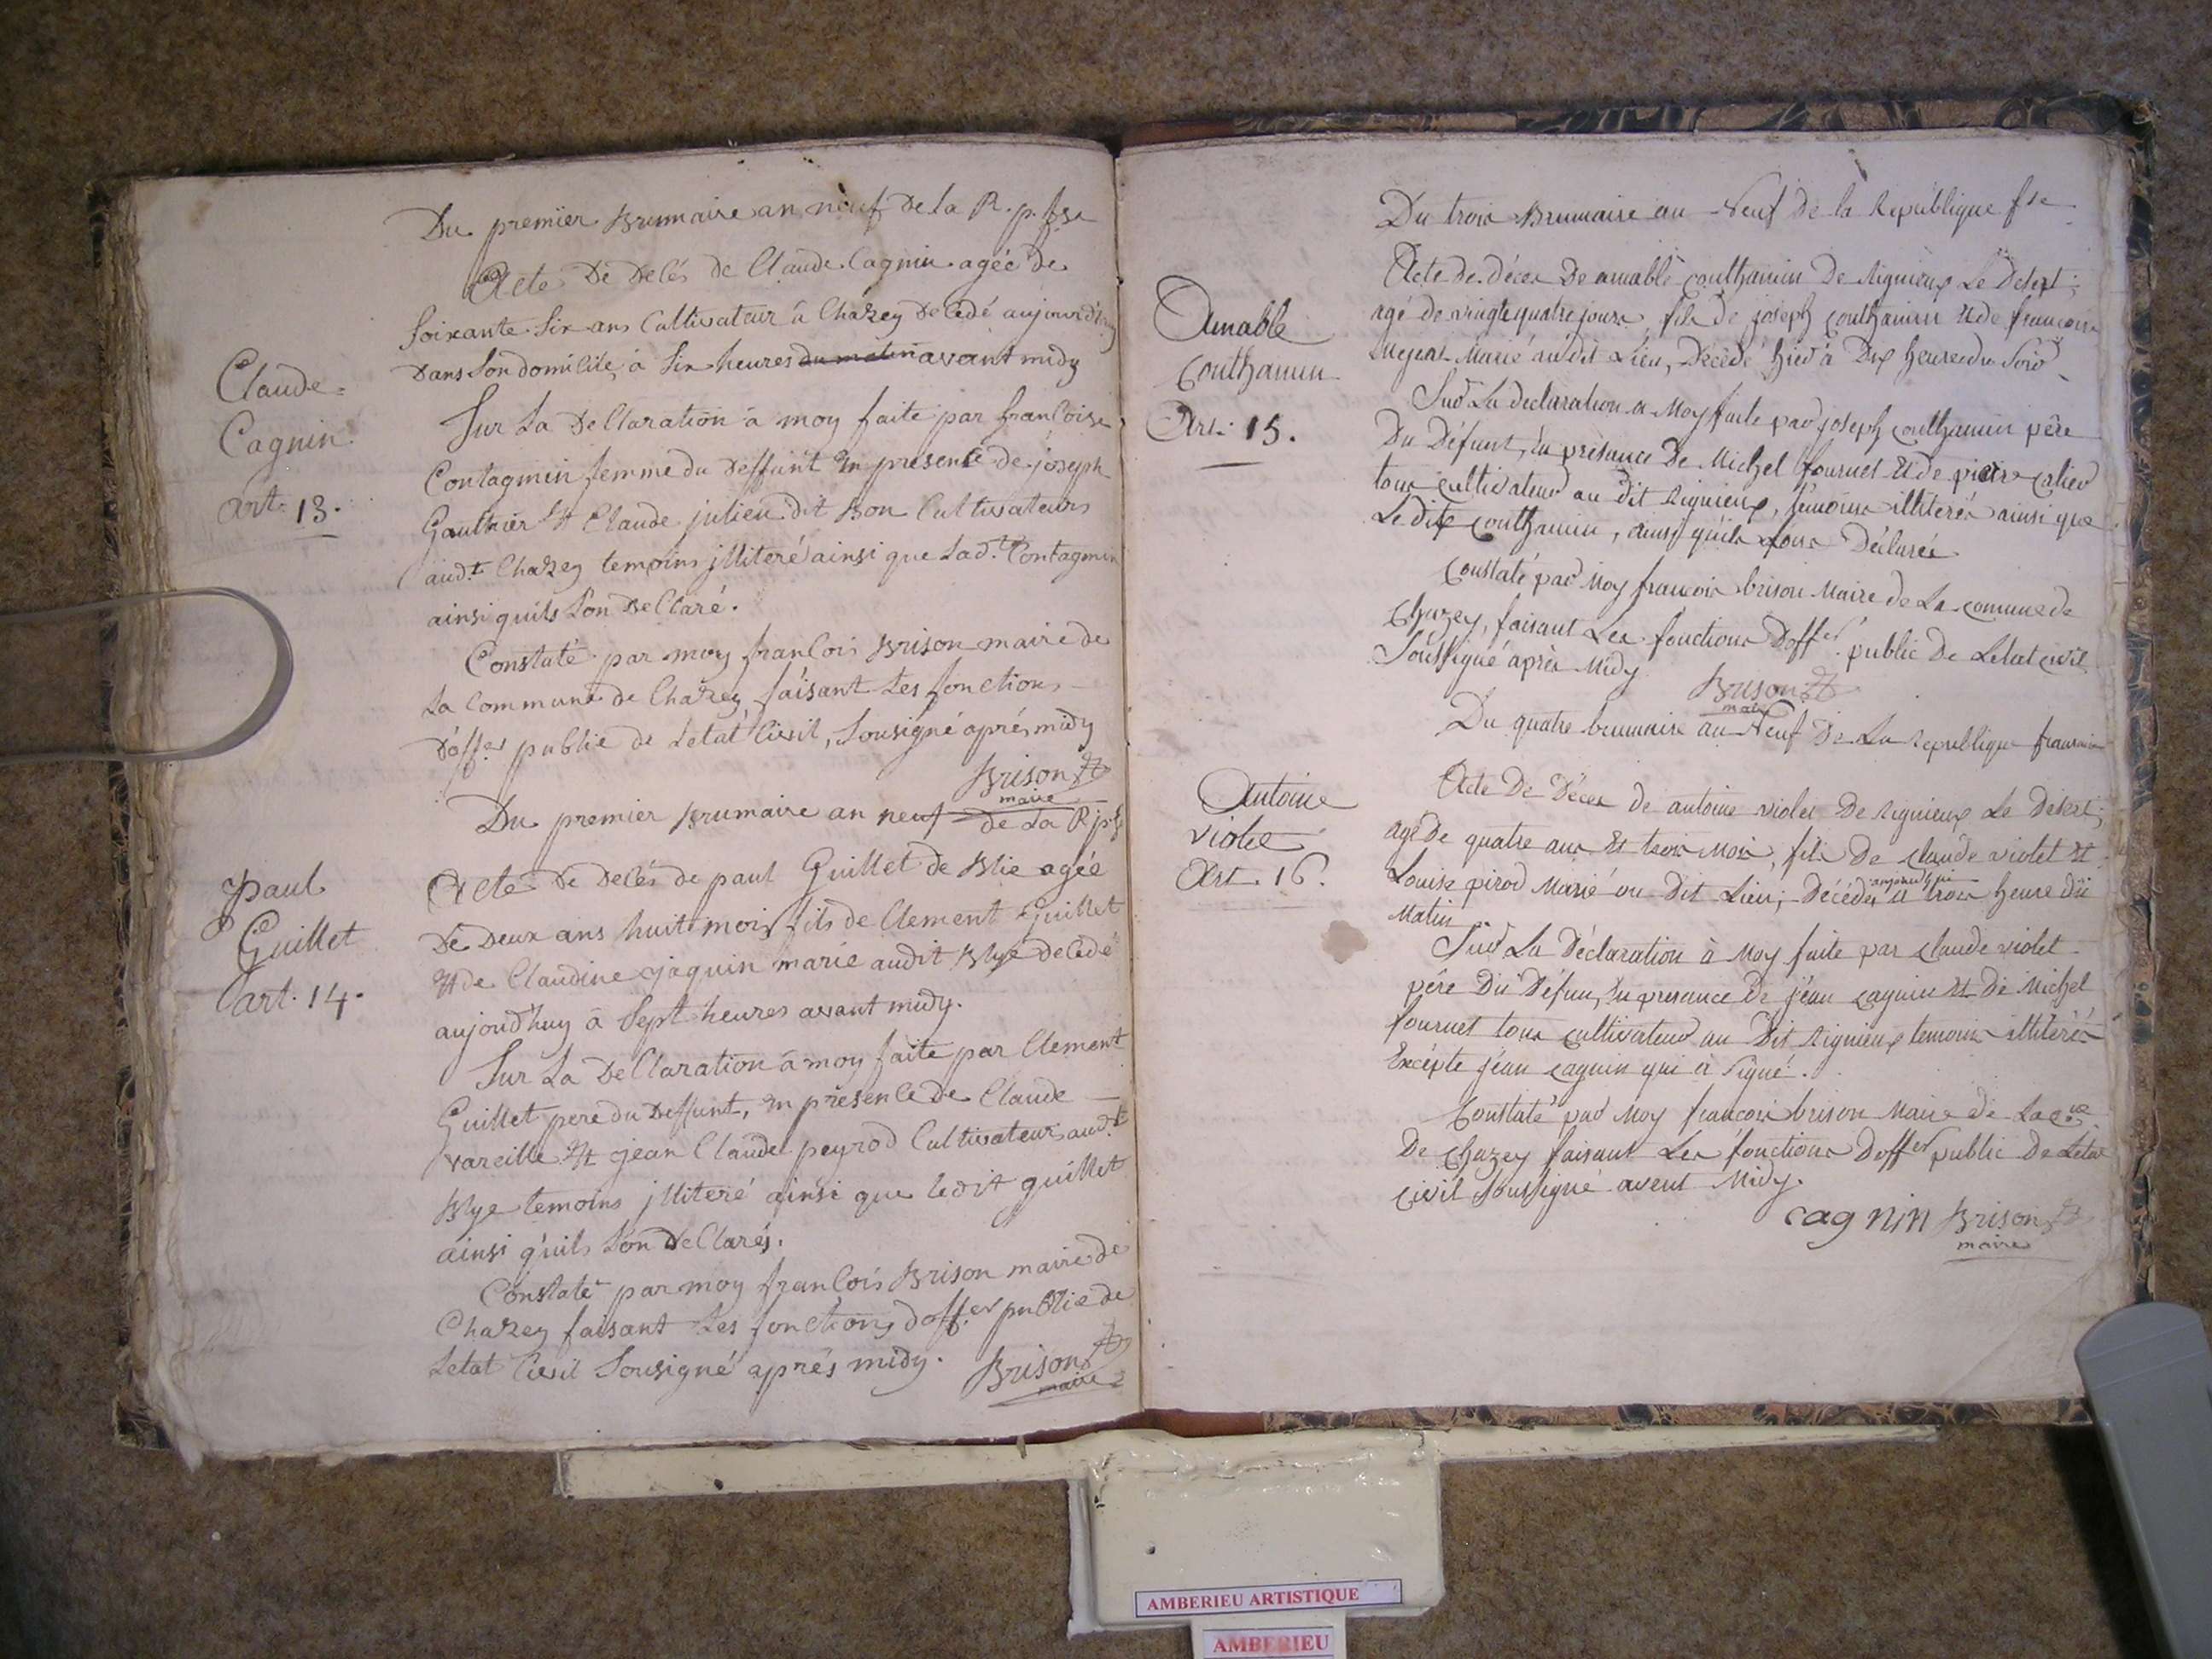 Du premier Brumaire an neuf de la R. p. fse
Acte de decés de Claude Cagnin agée de
soixante six ans Cultivateur à Chazey decedé aujourd'huy
dans son domicile, à six heures du matin avant midy
Claude
Cagnin
art. 13.
Sur la declaration à moy faite par françoise
Contagmin femme du deffunt en presence de joseph
Gauthier et Claude julien dit Bon Cultivateurs
aud.t Chazey temoins jlliteré ainsi que lad.te Contagmin
ainsi quils l'on declaré.
Constaté par moy françois Brison maire de
la Commune de Chazey, faisant les fonctions
d'off.er public de letat Civil, sousigné aprés midy
Brison
maire
Du premier Brumaire an neuf de la R. p. f
Paul
Guillet
art. 14.
Acte de decés de paul Guillet de Blie agée
de deux ans huit mois fils de Clement Guillet
et de Claudine jaquin marié audit Blye decedé
aujourdhuy à sept heures avant midy.
Sur la declaration à moy faite par Clement
Guillet pere du deffunt, en presence de Claude
vareille et jean Claude peyrod Cultivateurs aud.t
Blye temoins jlliteré ainsi que ledit guillet
ainsi q'uils l'on declarés.
Constaté par moy françois Brison maire de
Chazey faisant les fonctions d'off.er public de
letat Civil sousigné aprés midy.
Brison
maire
Du trois Brumaire an Neuf de la République fse
Amable
Conthamin
Art. 15.
Acte de décès de amable conthamin de Rignieux Le Desert;
agé de vingt quatre jours, fils de joseph conthamin et de francoise
Marié au dit Lieu, Décédé hier à Dix heures du Soir
Sur La declaration a Moy faite par joseph conthamin père
Du Défunt, en présance De Michel fournet et de pierre
tous cultivateur au dit Rignieux, témoins illitérés ainsi que
Le dit conthamin, ainsi quils Lons Déclarés
Constaté par Moy francois brison Maire de La comune de
Chazey, faisant Les fonctions D'offer public De Letat civil
Soussigné après Midy
Brison
maire
Du quatre brumaire an Neuf De La République francaise
Antoine
violet
Art. 16.
Acte De Décès de antoine violet De Rignieux Le Désert;
agé De quatre ans Et trois Mois, fils De claude violet et
Louise pirod Marié au Dit Lieu; Décédé aujourdhui a trois heure du
Matin
Sur La Déclaration à Moy faite par claude violet
pére Du Défun, en presance De jéan cagnin et De Michel
fournet tous cultivateur au Dit Rignieux temoins illitérés
Excépte jéan cagnin qui à signé.
Constaté par Moy francois brison Maire de La cne
De chazey faisant Les fonctions D'offer public De Letat
civil Soussigné avent Midy.
cagnin Brison
maire
AMBERIEU ARTISTIQUE
AMBERIEU